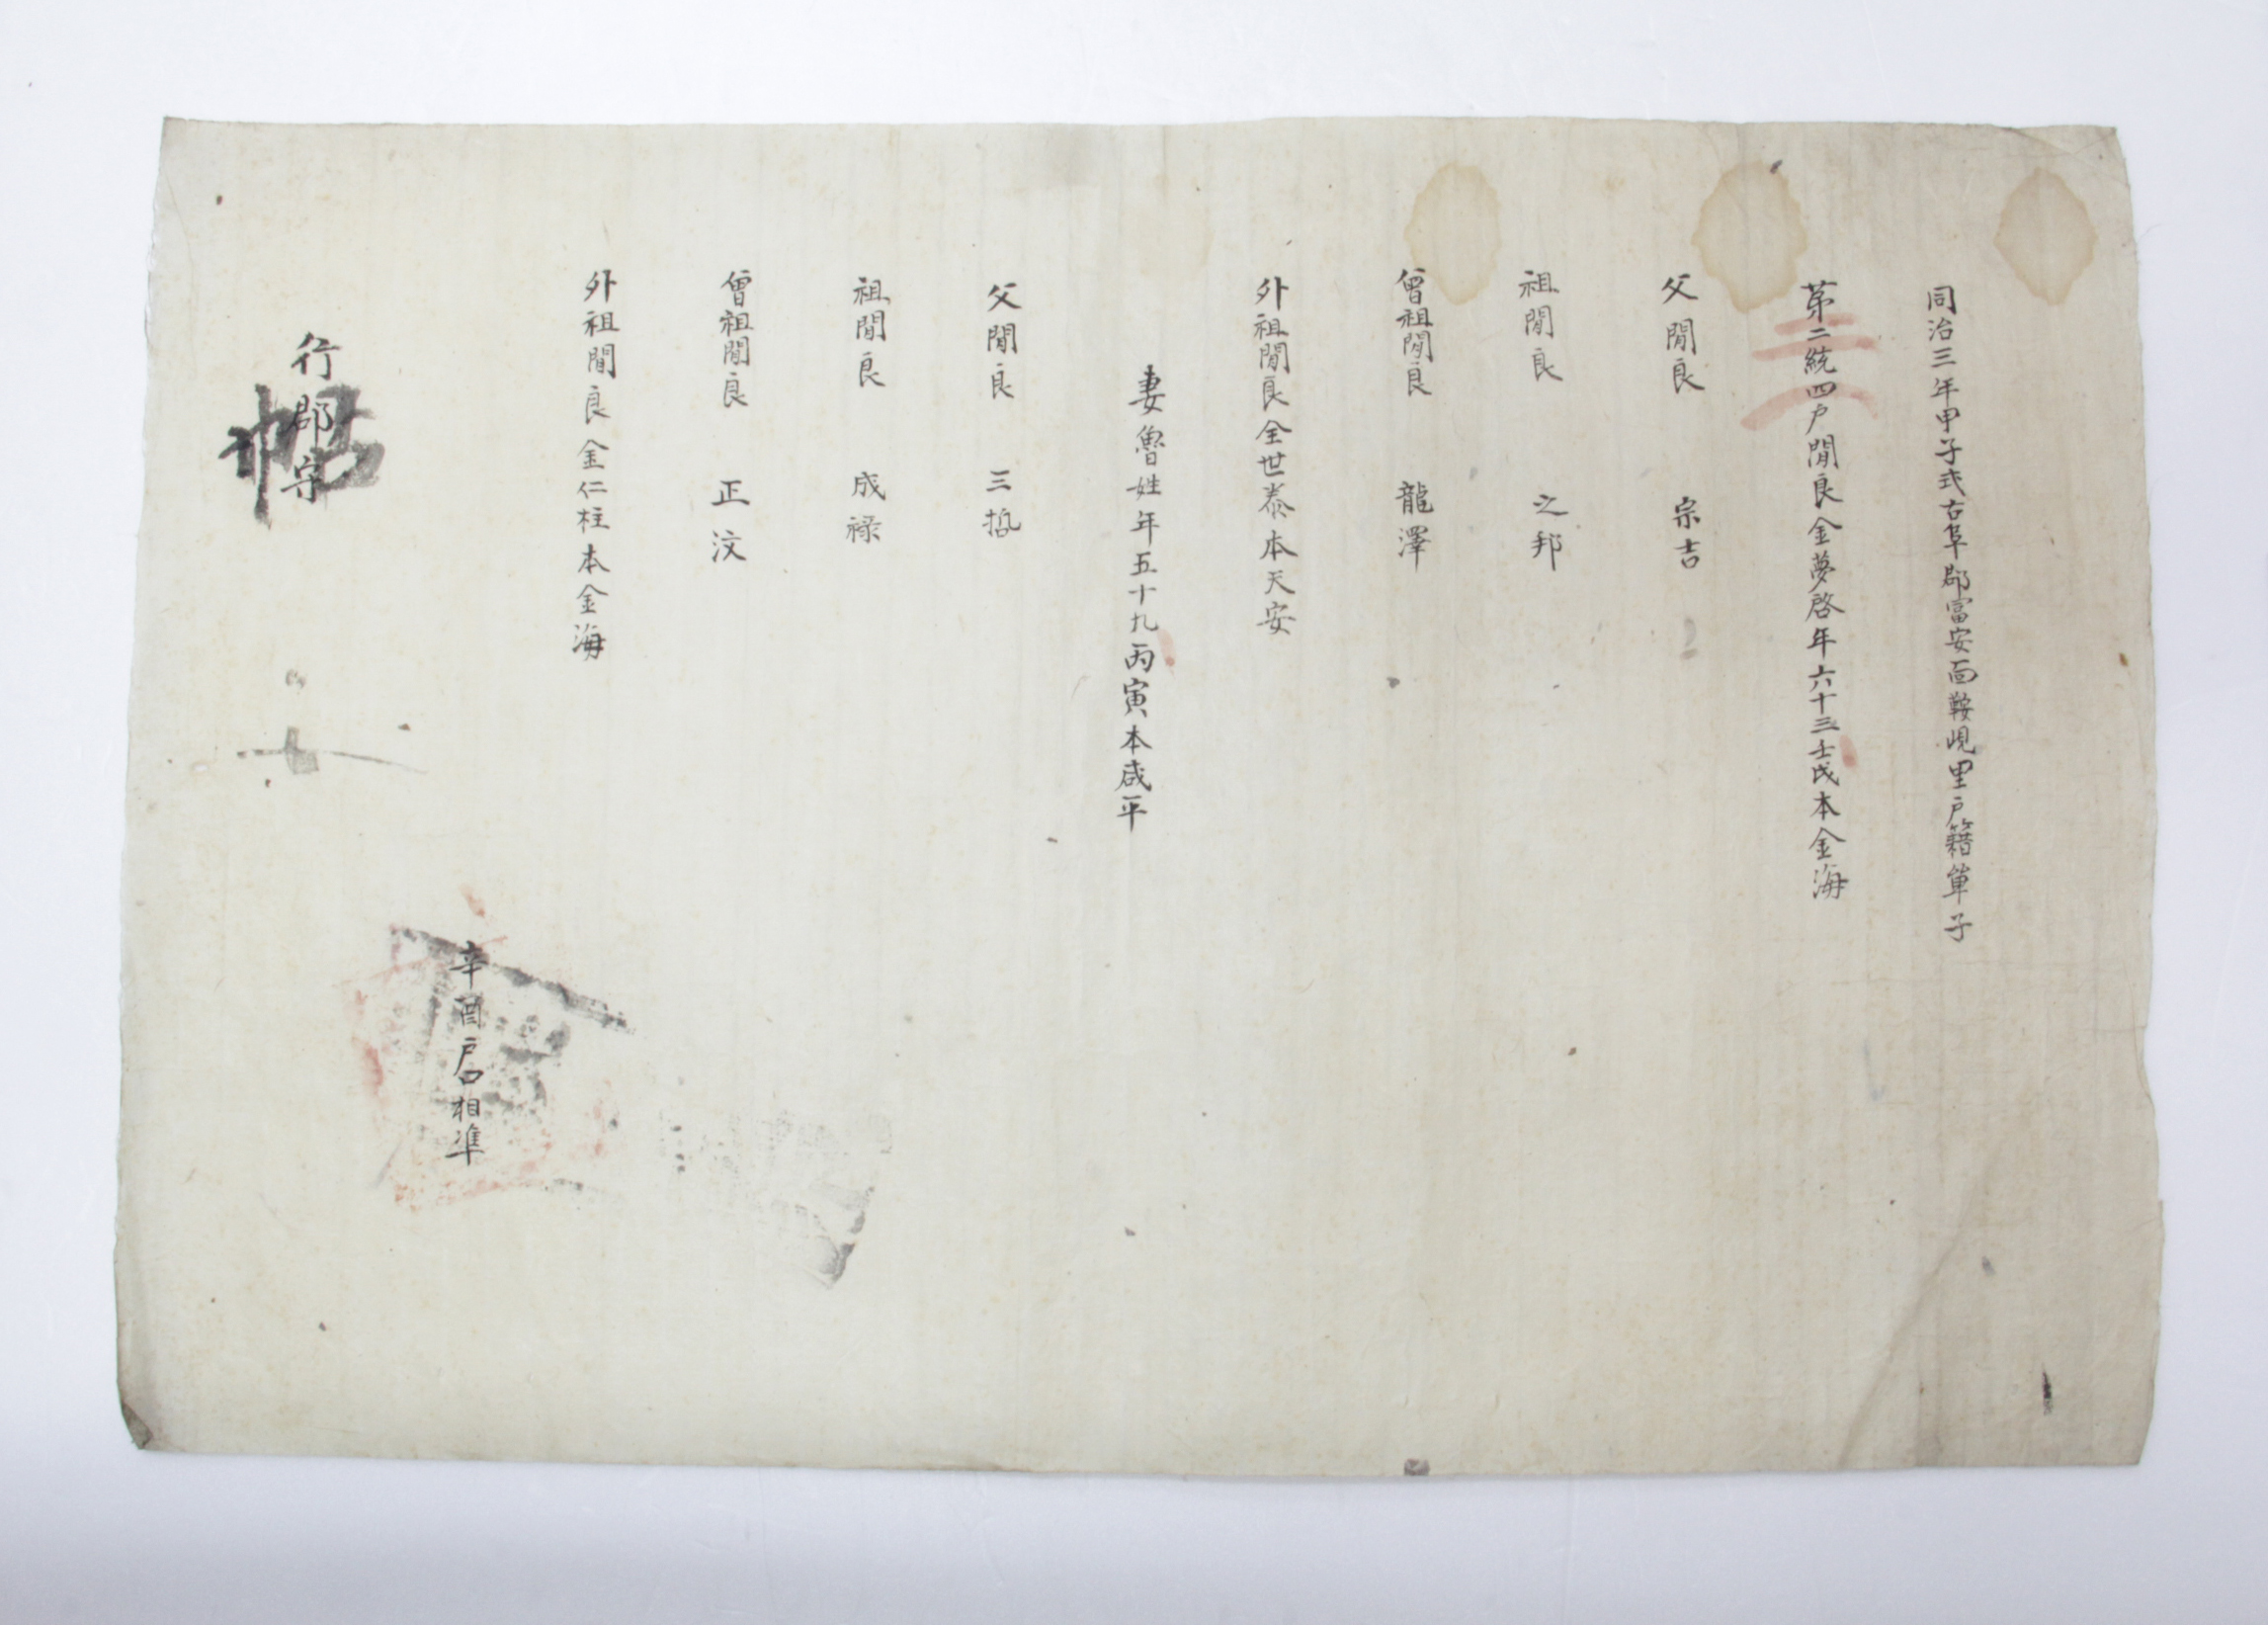 同治三年甲子式古阜郡富安面鞍峴里戶籍單子
第二統四戶閒良金夢啓年六十三壬戌本金海
父閒良 宗吉
祖閒良 之邦
曾祖閒良 龍澤
外祖閒良全世泰本天安
妻魯姓年五十九丙寅本咸平
父閒良 三哲
祖閒良 成祿
曾祖閒良 正汶
外祖閒良金仁柱本金海
辛酉戶口相準
行郡守